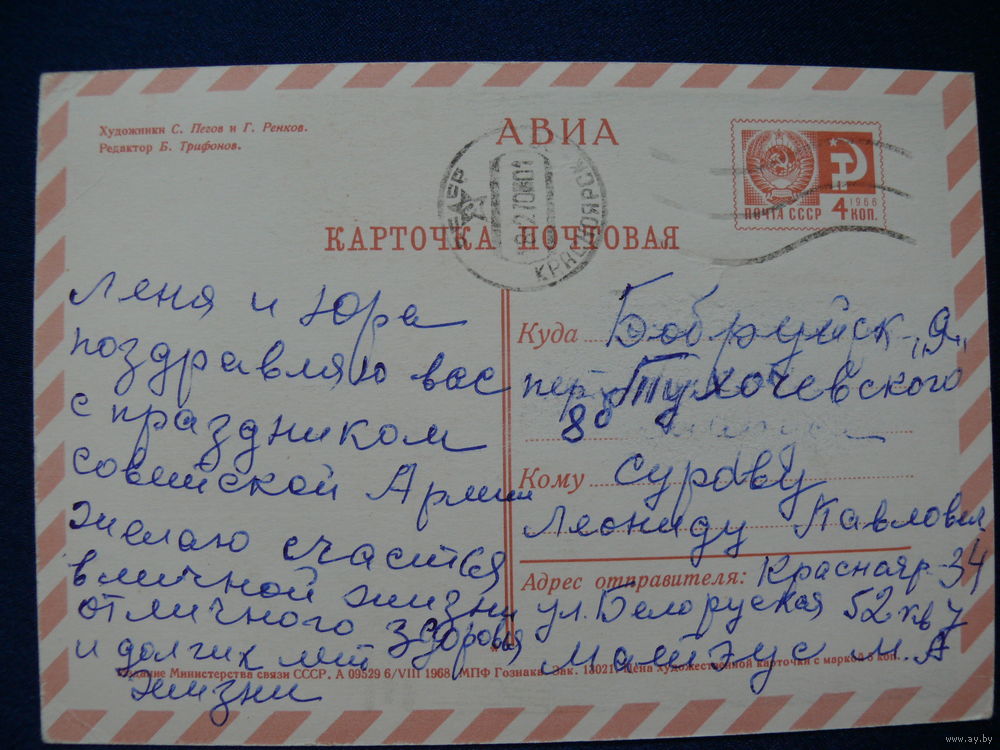 Художники С. Пегов и Г. Ренков.
Редактор Б. Трифонов.
АВИА
ПОЧТА СССР 4 КОП.
1966
КРАСНОЯРСК
КАРТОЧКА ПОЧТОВАЯ
Леня и Юра
поздравляю вас
с праздником
советской Армии
желаю счастья
в личной жизни
отличного здоровья
и долгих лет
жизни
Куда Бобруйск-„Я„
пер Тухочевского
8б
Кому Сурову
Леониду Павлович
Адрес отправителя: Краснояр-34
ул. Белоруская 52 кв 7
Матеус М. А
Издание Министерства связи СССР. А 09529 6/VIII 1968. МПФ Гознака. Зак. 13021. Цена художественной карточки с маркой 5 коп.
www.ay.by